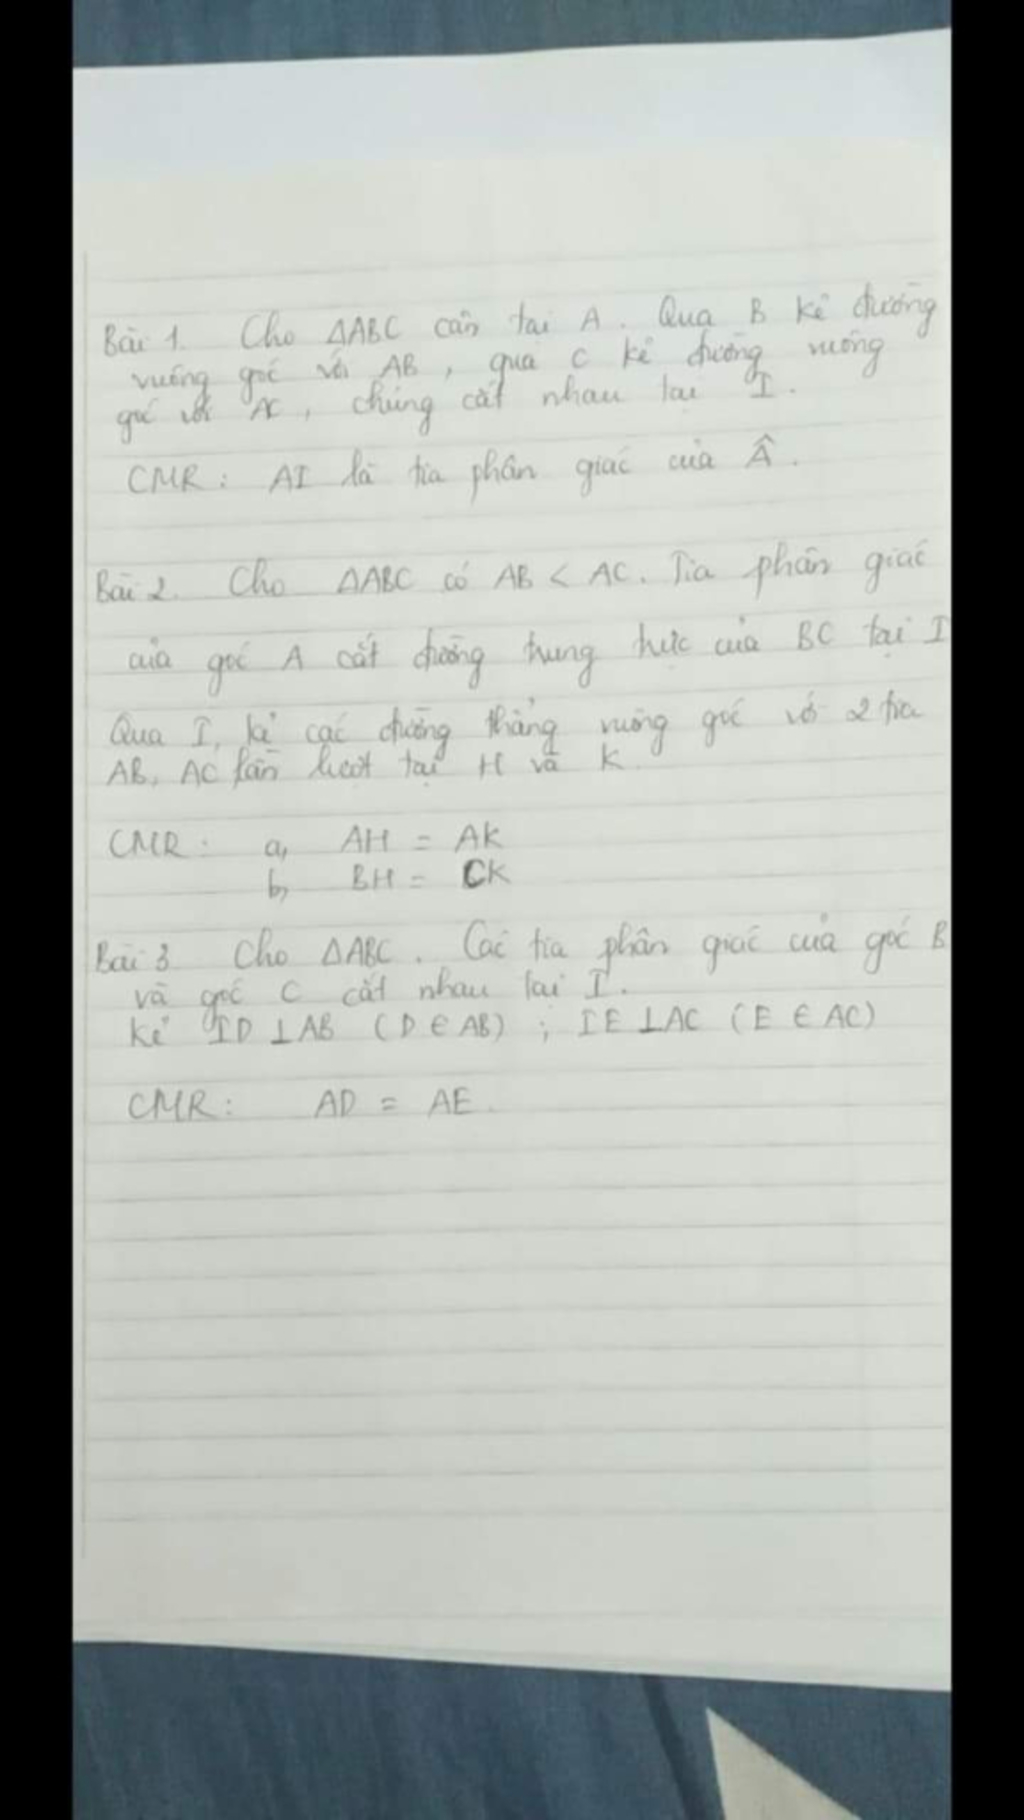 Bài 1. Cho ΔABC cân tại A. Qua B kẻ đường
vuông góc với AB, qua C kẻ đường vuông
góc với AC, chúng cắt nhau tại I.
CMR: AI là tia phân giác của Â.
Bài 2. Cho ΔABC có AB < AC. Tia phân giác
của góc A cắt đường trung trực của BC tại I
Qua I, kẻ các đường thẳng vuông góc với 2 tia
AB, AC lần lượt tại H và K.
CMR: a, AH = AK
b, BH = CK
Bài 3 Cho ΔABC. Các tia phân giác của góc B
và góc C cắt nhau tại I.
Kẻ ID⊥AB (D ∈ AB) ; IE⊥AC (E ∈ AC)
CMR: AD = AE.